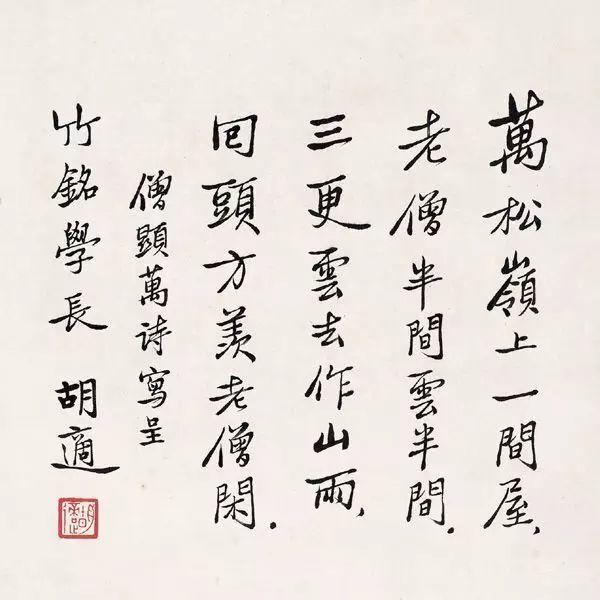 萬松嶺上一間屋、
老僧半間雲半間．
三更雲去作山雨、
回頭方羨老僧閑．
僧顯萬詩寫呈
竹銘學長 胡適
胡適